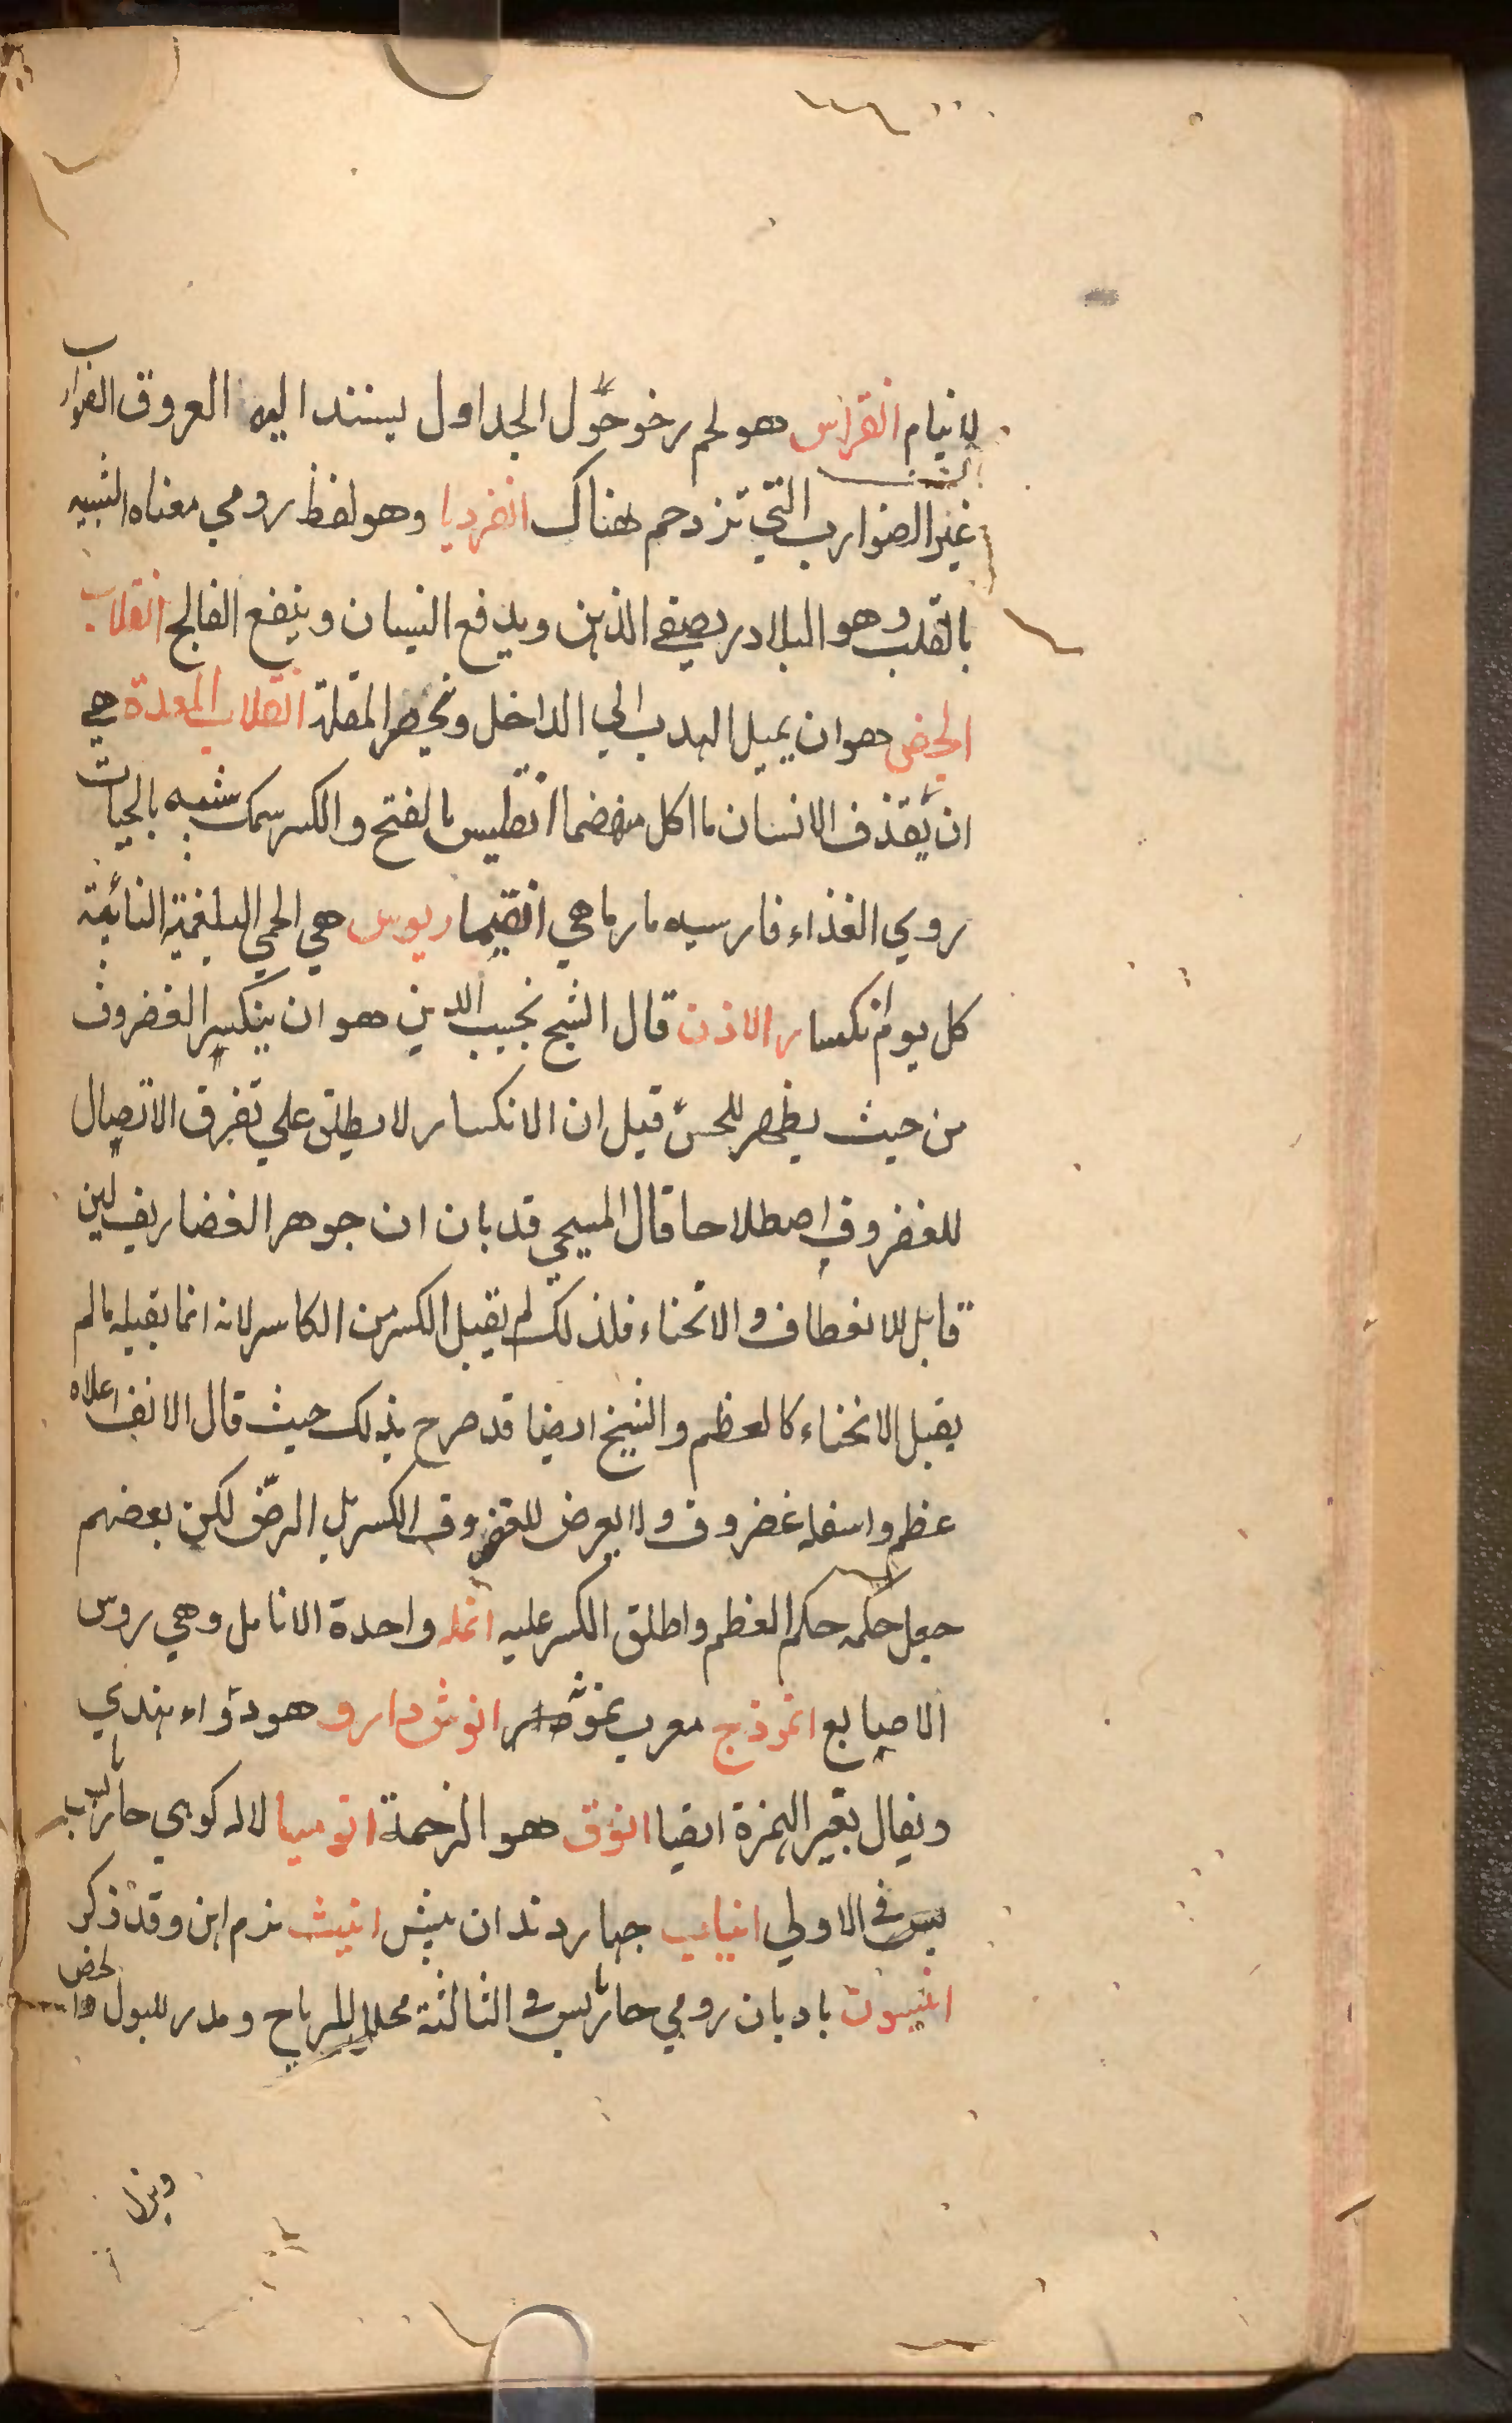 لا ينام انقراس هو لحم رخو حول الجداول يستند اليه العروق الضوارب
غير الضوارب التي تزدحم هناك انقرديا وهو لفظ رومي معناه الشبيه
بالقلب وهو البلادر يصفي الذهن ويدفع النسيان وينفع الفالج انقلاب
الجفن هو ان يميل الهدب الي الداخل وتحمر المقلة انقلاب المعدة هي
ان يقذف الانسان ما اكل منهضما انقليس بالفتح والكسر سمك شبيه بالحيات
روي الغذاء فارسيه مارماهي انقيماريوس هي الحمي البلغمية النائبة
كل يوم انكسار الاذن قال الشيخ نجيب الدين هو ان ينكسر الغضروف
من حيث يظهر للحس قيل ان الانكسار لا يطلق علي تفرق الاتصال
للغضروف اصطلاحا قال المسيحي قد بان ان جوهر الغضاريف لين
قابل للانعطاف والانحناء فلذلك لم يقبل الكسر من الكاسر لانه انما يقبله ما لم
يقبل الانحناء كالعظم والشيخ ايضا قد صرح بذلك حيث قال الانف اعلاه
عظم واسفله غضروف ولا يعرض للغضروف الكسر بل الرض لكن بعضهم
جعل حكمه حكم العظم واطلق الكسر عليه انمله واحدة الانامل وهي روس
الاصابع انموذج معرب نموده انوش دارو هو دواء هندي
ويقال بغير الهمزة ايضا انوق هو الرخمة انوميا لاله كوهي حار يابس
في الاولي انياب چهار دندان پيش انيث نرم اهن وقد ذكر
انيسون باديان رومي حار يابس في الثالثة محلل للرياح ومدر للبول